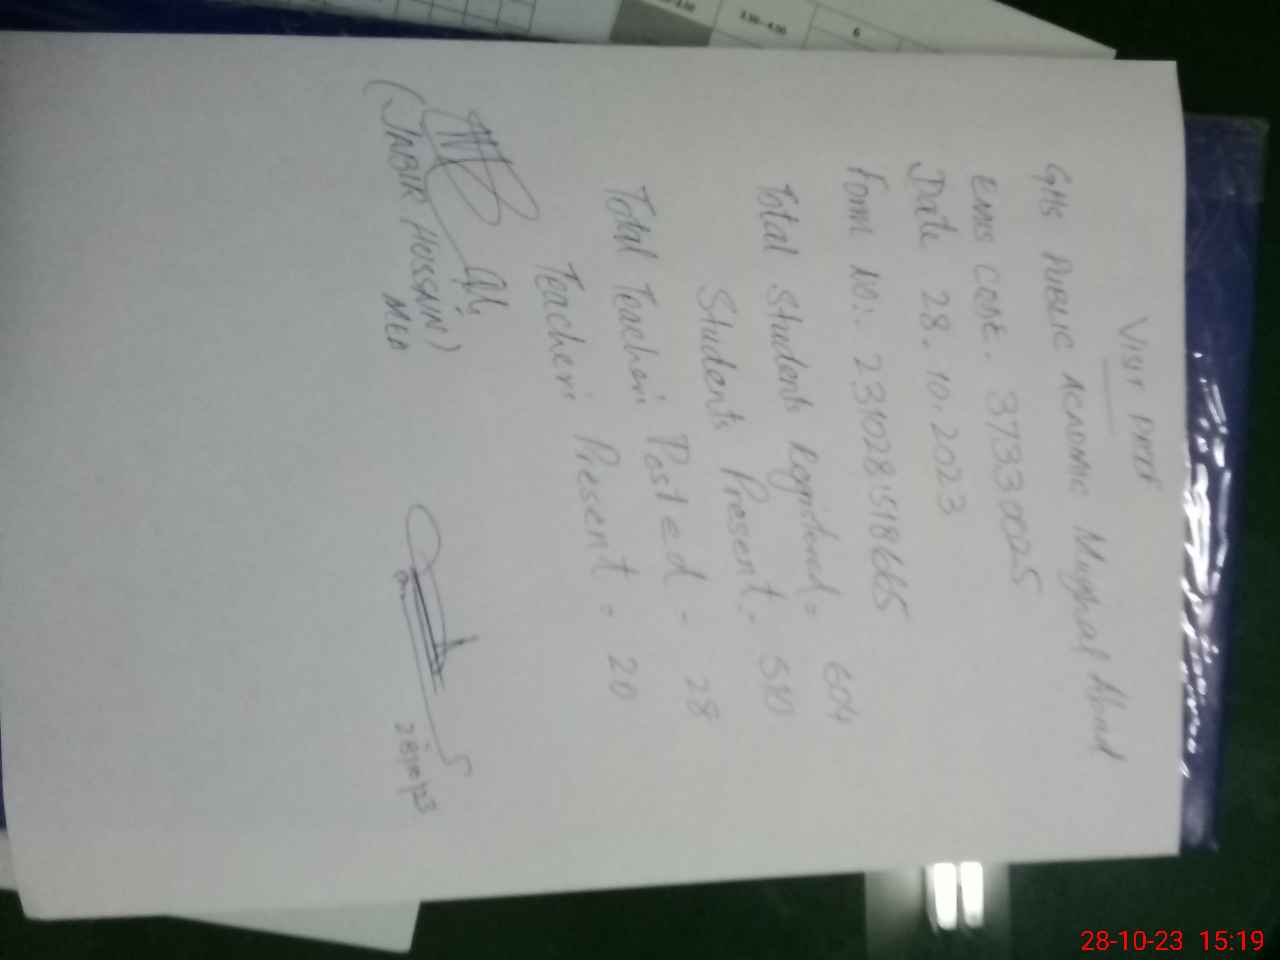 VISIT PROOF
GHS PUBLIC ACADMIC Mughal Abad
EMIS CODE. 37330025
Date 28.10.2023
Form NO:. 2310281518665
Total Students Registered = 604
Students Present - 510
Total Teachers Posted - 28
Teachers Present = 20
(JABIR HUSSAIN)
MEA
28/10/23
2.30-4.00
6
28-10-23 15:19